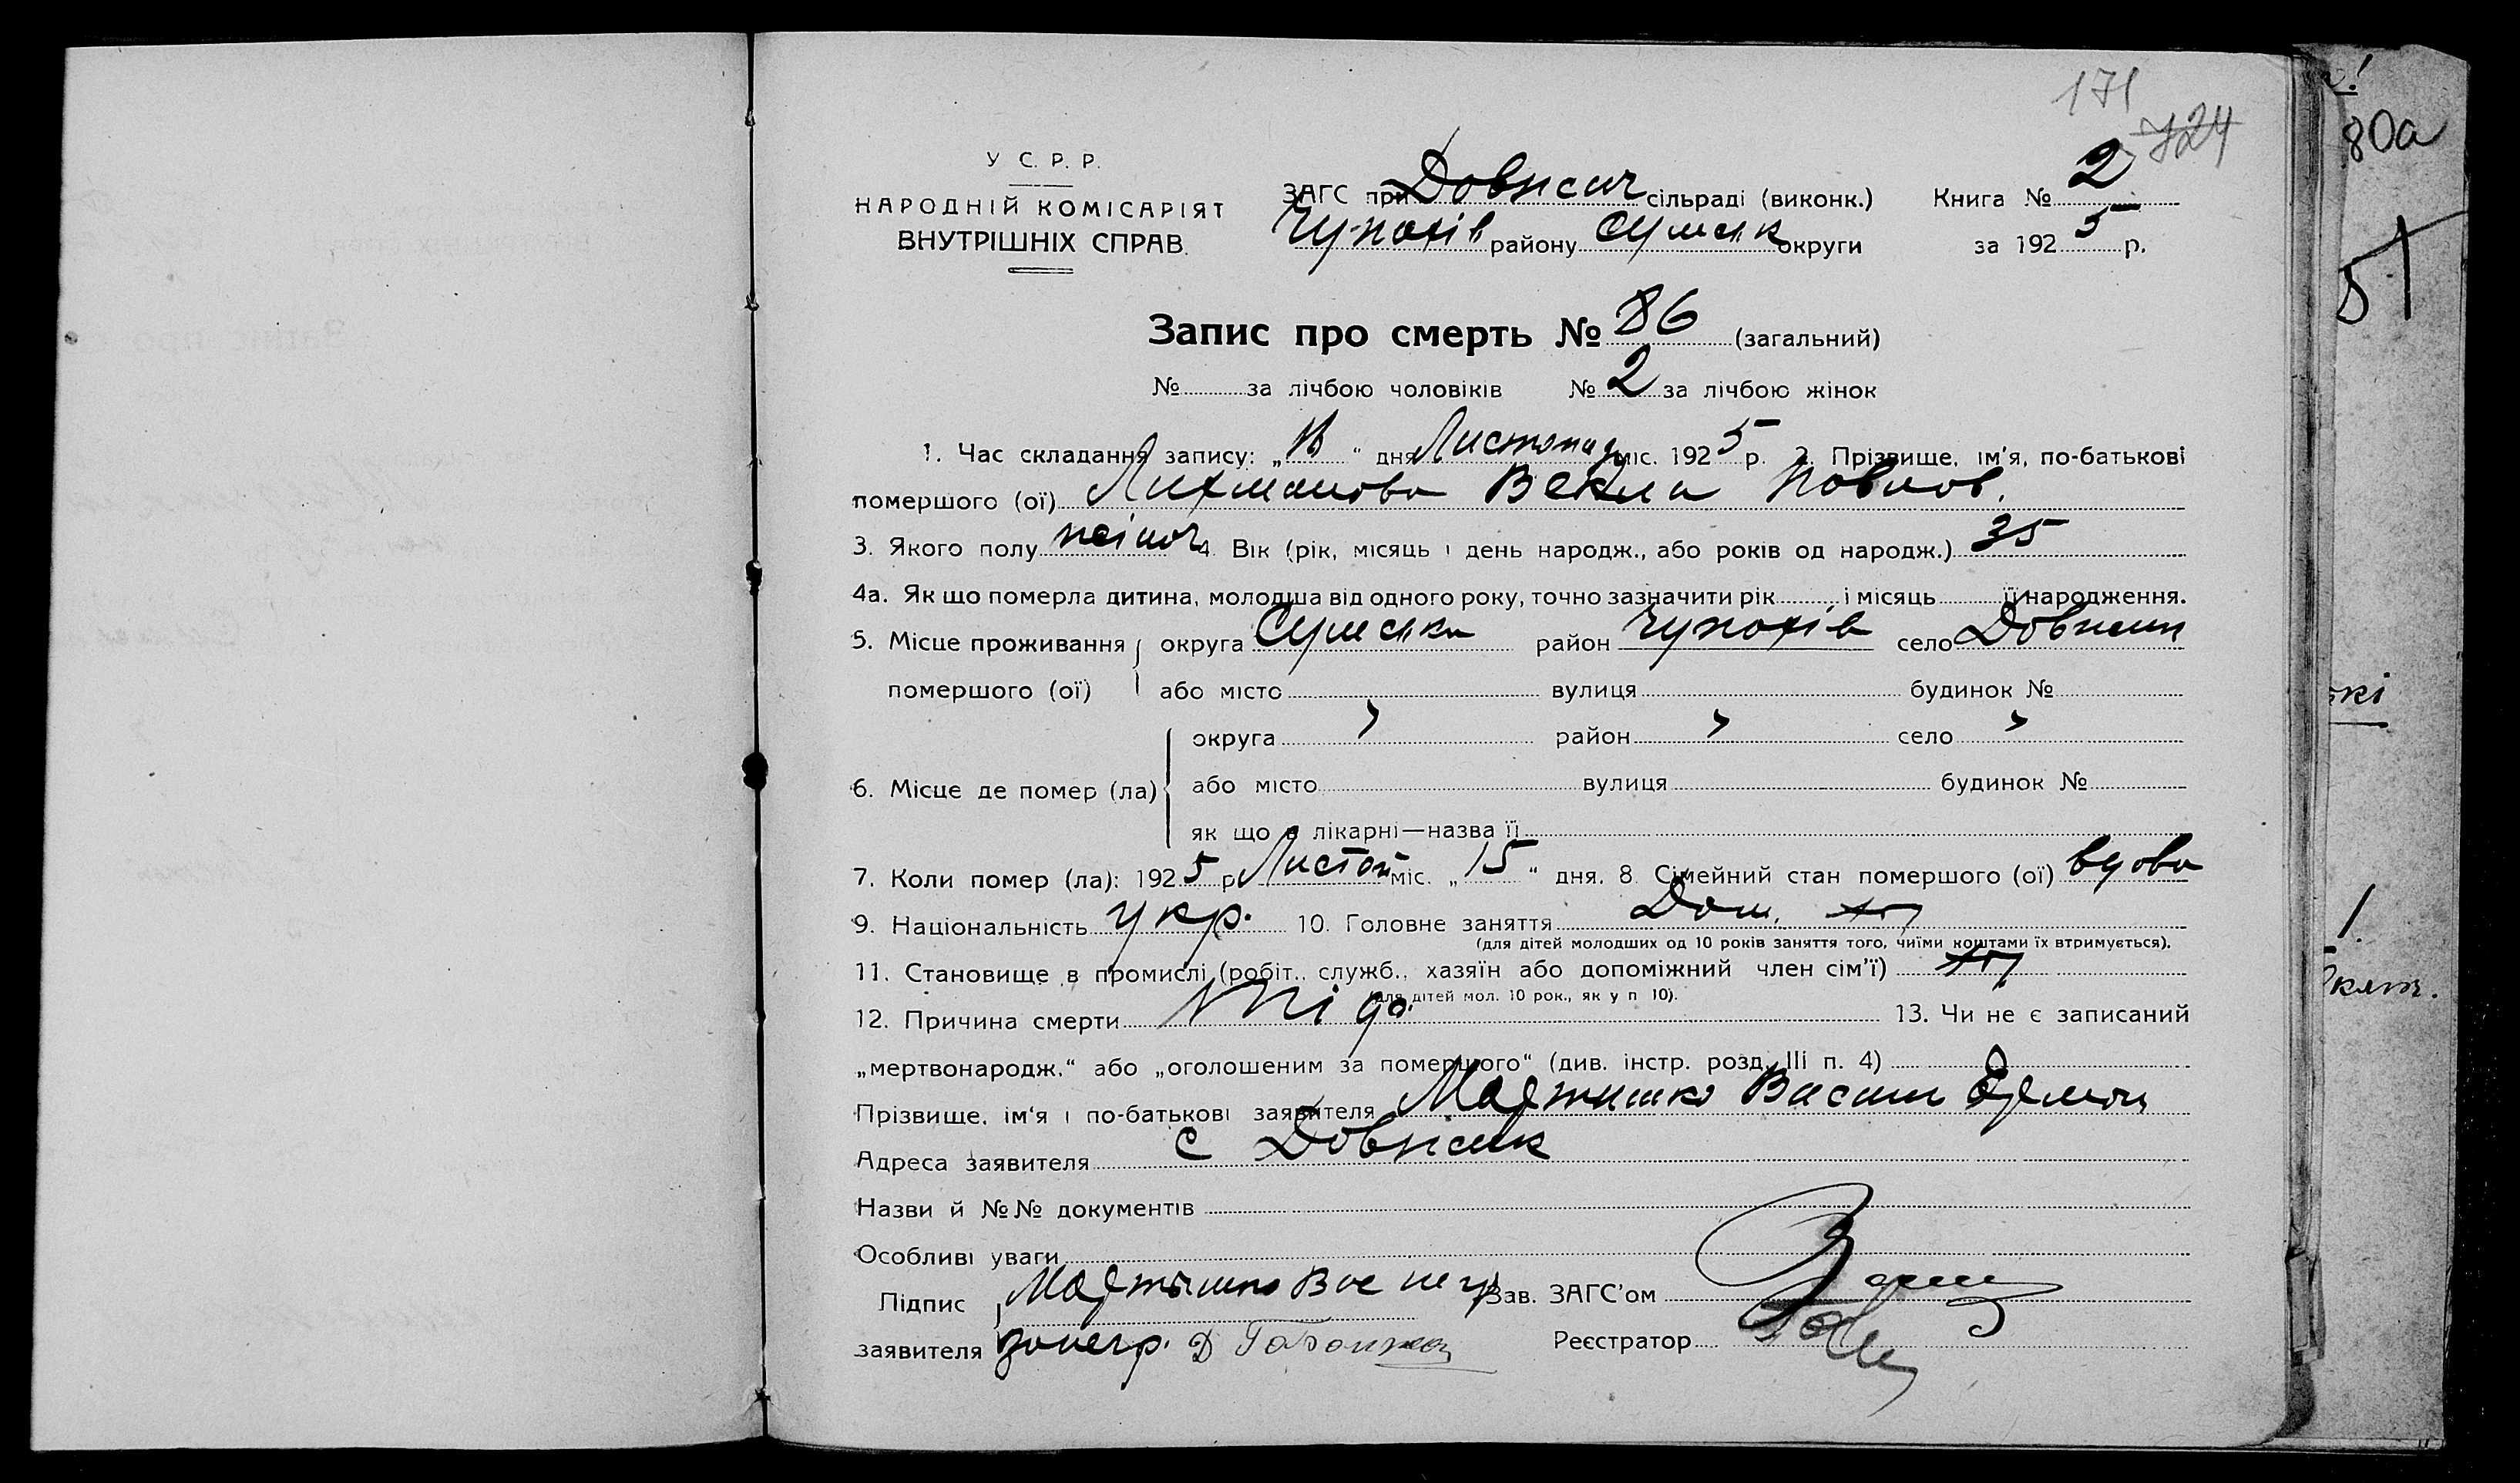 171
724
У С. Р. Р.
НАРОДНІЙ КОМІСАРІЯТ
ВНУТРІШНІХ СПРАВ.
ЗАГС при Довжич сільраді (виконк.) Книга № 2
Чупахів району Сумськ округи за 1925 р.
Запис про смерть № 86 (загальний)
№ за лічбою чоловіків № 2 за лічбою жінок
1. Час складання запису: „ “ дня Листопад міс. 1925 р. 2. Прізвище, ім'я, по-батькові
помершого (ої) Лихманова Векла Павлов.
3. Якого полу жіноч 4. Вік (рік, місяць і день народж., або років од народж.) 35
4а. Як що померла дитина, молодша від одного року, точно зазначити рік і місяць її народження.
5. Місце проживання округа Сумська район Чупахів село Довжик
помершого (ої) або місто вулиця будинок №
округа район село
6. Місце де помер (ла) або місто вулиця будинок №
як що в лікарні—назва її
7. Коли помер (ла): 1925 р. Листоп міс. „15“ дня. 8. Сімейний стан помершого (ої) вдова
9. Національність укр. 10. Головне заняття Дом.
(для дітей молодших од 10 років заняття того, чиїми коштами їх втримується).
11. Становище в промислі (робіт., служб., хазяїн або допоміжний член сім'ї)
(для дітей мол. 10 рок., як у п 10).
12. Причина смерти 13. Чи не є записаний
„мертвонародж.“ або „оголошеним за помершого“ (див. інстр. розд. III п. 4)
Прізвище, ім'я і по-батькові заявителя Мартишко Васил
Адреса заявителя с Довжик
Назви й №№ документів
Особливі уваги
Підпис Мартишко Вас негр Зав. ЗАГС'ом
заявителя Реєстратор
80а
51
ькі
1.